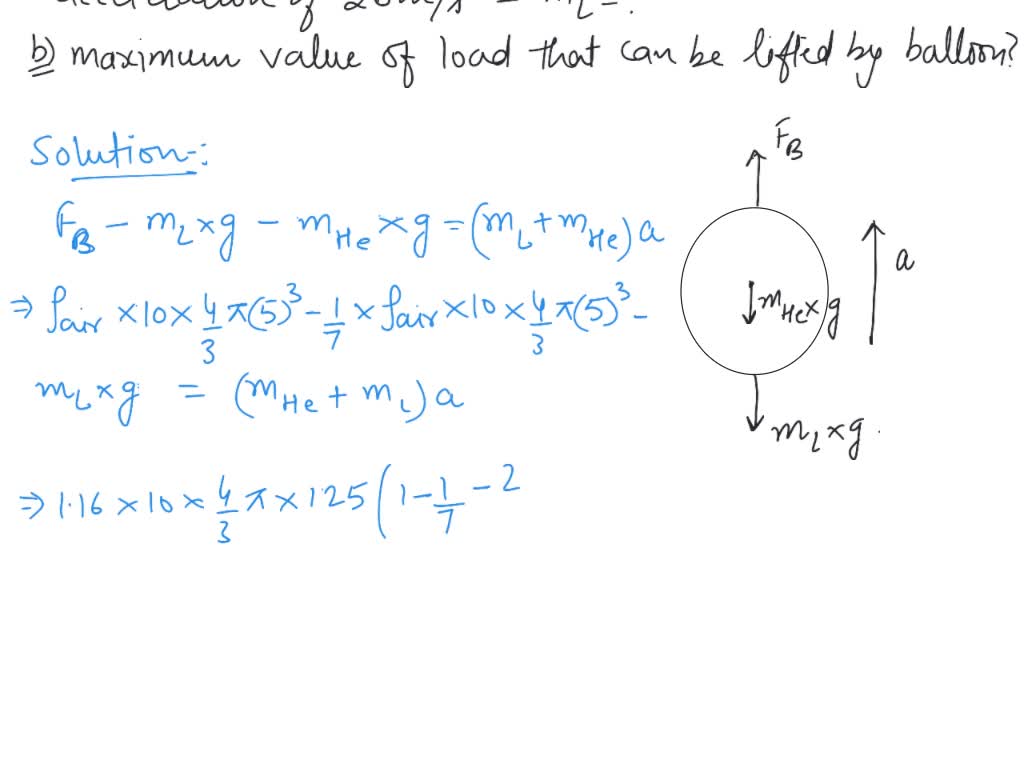 acceleration of 20 m/s² = mL = ?
b) maximum value of load that can be lifted by balloon?
Solution-:
FB - mL×g - mHe×g = (mL + mHe) a
⇒ ρair ×10× 4/3 π(5)³ - 1/7 × ρair ×10× 4/3 π(5)³ -
mL×g = (mHe + mL) a
⇒ 1.16 ×10× 4/3 π × 125 (1 - 1/7 - 2
FB
a
mHe×g
mL×g